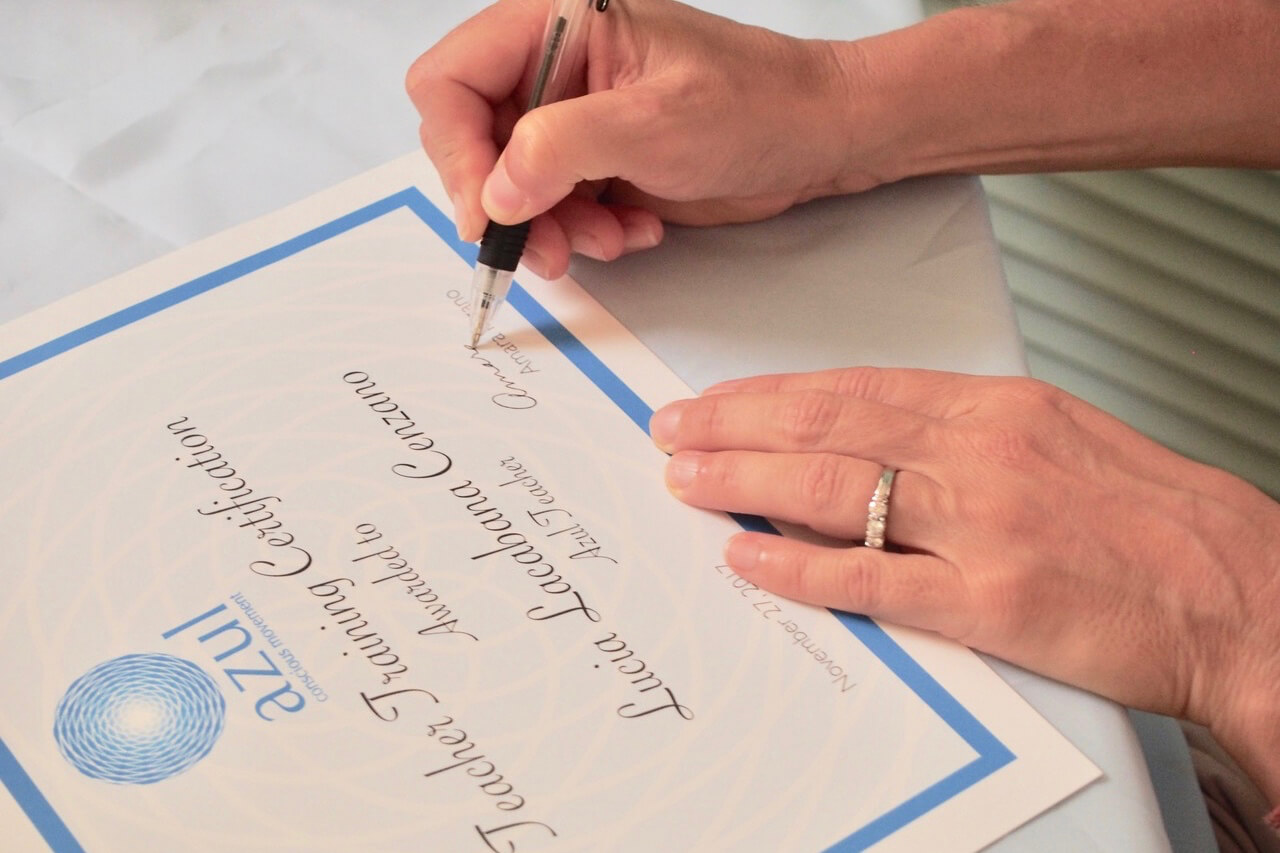 azul
conscious movement
Teacher Training Certification
Awarded to
Lucia Lacabana Cenzano
Azul Teacher
November 27, 2017
Amara